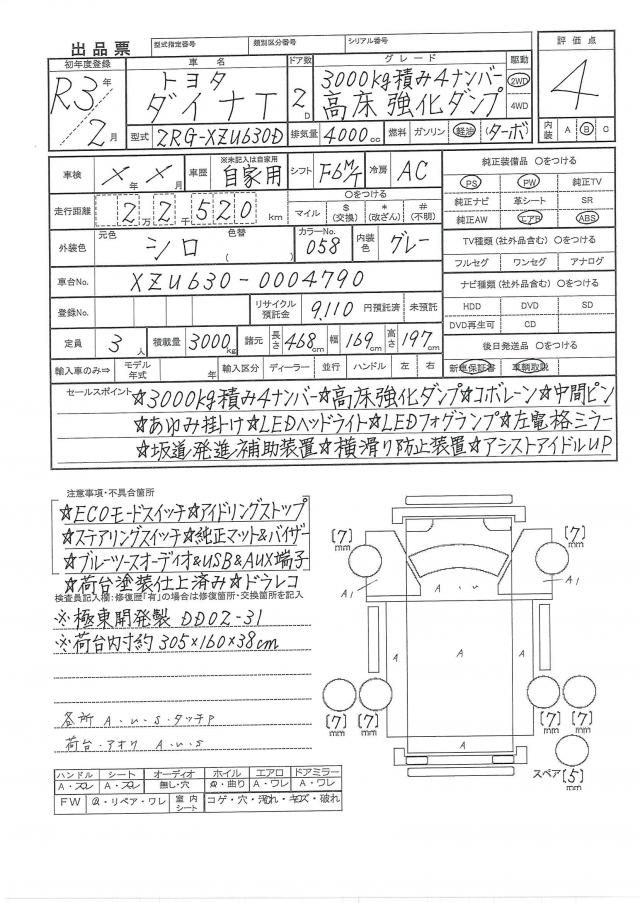 出品票 型式指定番号 類別区分番号 シリアル番号
初年度登録 車名 ドア数 グレード 駆動 評価点
R3年 2月 トヨタ ダイナT 2D 3000kg積み4ナンバー 高床強化ダンプ 2WD 4WD 4
型式 2RG-XZU630D 排気量 4000cc 燃料 ガソリン 軽油 (ターボ) 内装 A B C
車検 ×年 ×月 車歴 ※未記入は自家用 自家用 シフト F6M/T 冷房 AC 純正装備品 ○をつける
PS PW 純正TV
走行距離 2 2万 2千 520 km ○をつける マイル $(交換) *(改ざん) #(不明) 純正ナビ 革シート SR
純正AW エアB ABS
外装色 元色 シロ 色替 ( ) カラーNo. 058 内装色 グレー TV種類(社外品含む)○をつける
フルセグ ワンセグ アナログ
車台No. XZU630-0004790 ナビ種類(社外品含む)○をつける
登録No. リサイクル預託金 9,110 円預託済 未預託 HDD DVD SD
DVD再生可 CD
定員 3人 積載量 3000kg 諸元 長さ 468cm 幅 169cm 高さ 197cm 後日発送品 ○をつける
輸入車のみ⇒ モデル年式 年 輸入区分 ディーラー 並行 ハンドル 左 右 新車保証書 車輌取説
セールスポイント ☆3000kg積み4ナンバー☆高床強化ダンプ☆コボレーン☆中間ピン
☆あゆみ掛け☆LEDヘッドライト☆LEDフォグランプ☆左電格ミラー
☆坂道発進補助装置☆横滑り防止装置☆アシストアイドルUP
注意事項・不具合箇所
☆ECOモードスイッチ☆アイドリングストップ
☆ステアリングスイッチ☆純正マット&バイザー
☆ブルーツースオーディオ&USB&AUX端子
☆荷台塗装仕上済み☆ドラレコ
検査員記入欄:修復歴「有」の場合は修復箇所・交換箇所を記入
※極東開発製 DD02-31
※荷台内寸約 305×160×38cm
各所 A.U.S.タッチP
荷台・アオリ A.U.S
[7]mm [7]mm
A1 A.U A1
A A A
[7]mm [7]mm [7]mm [7]mm
A
スペア [5]mm
ハンドル シート オーディオ ホイル エアロ ドアミラー
A・スレ A・スレ 無し・穴 A・曲り A・ワレ A・ワレ
FW A・リペア・ワレ 室内シート コゲ・穴・汚れ・キズ・破れ